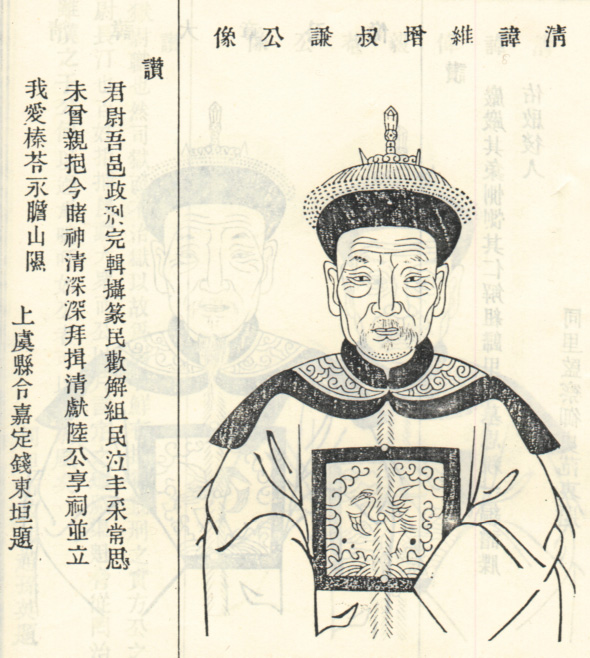 清諱維增叔謙公像
讚
君尉吾邑政刑完輯攝篆民歡解組民泣丰采常思
未曾親挹今睹神清深深拜揖清獻陸公享祠並立
我愛榛苓永瞻山隰
上虞縣令嘉定錢東垣題